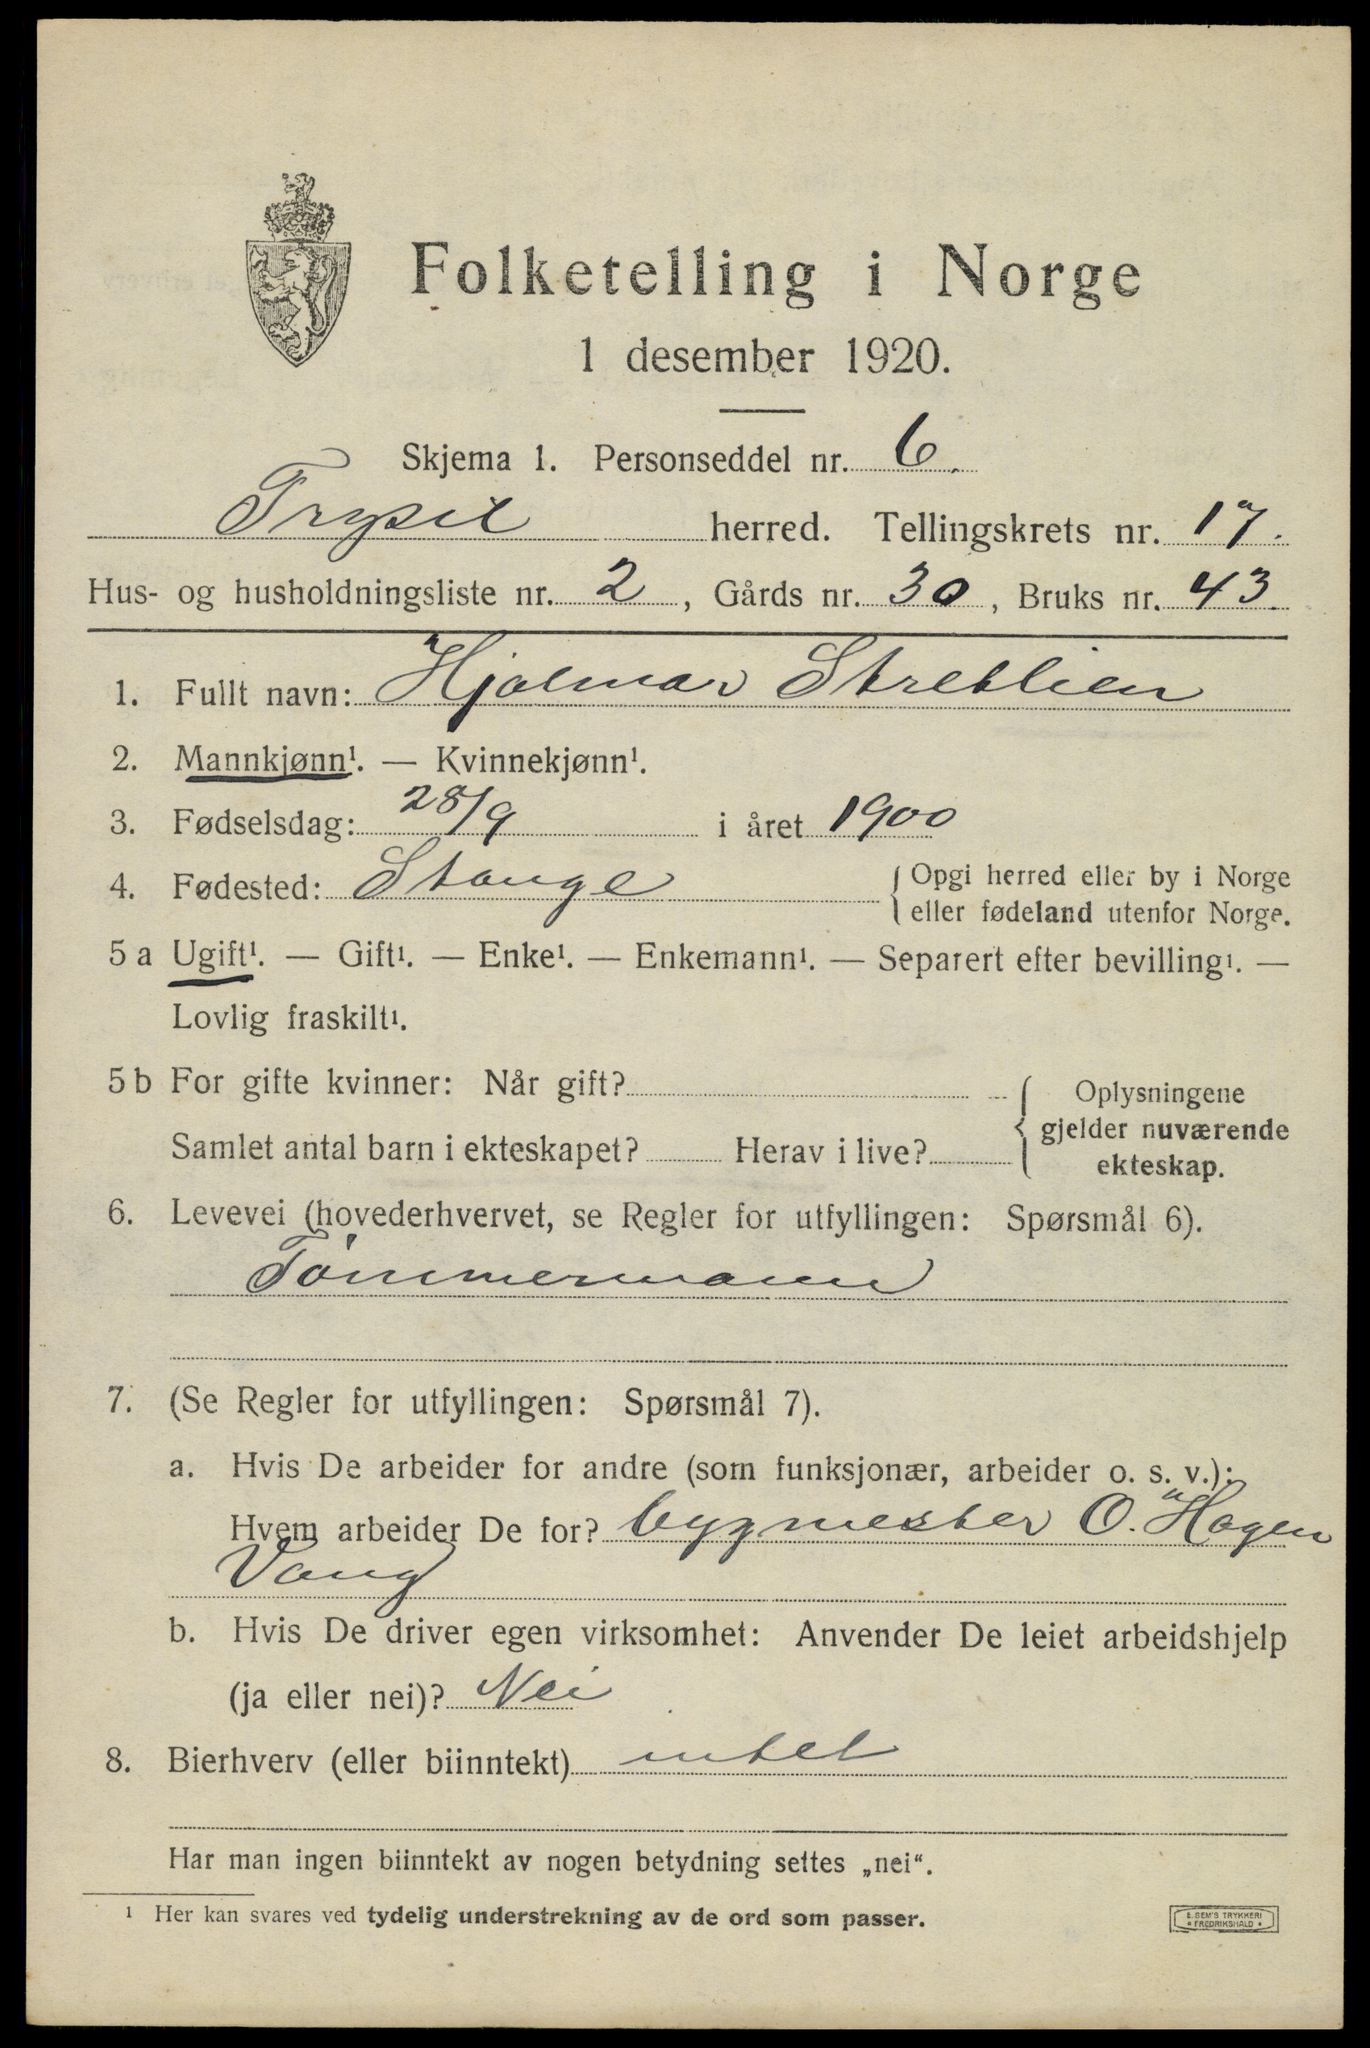 Folketelling i Norge
1 desember 1920.
Skjema 1. Personseddel nr. 6.
Trysil herred. Tellingskrets nr. 17.
Hus- og husholdningsliste nr. 2, Gårds nr. 30, Bruks nr. 43.
1. Fullt navn: Hjalmar Stretlien
2. Mannkjønn¹. — Kvinnekjønn¹.
3. Fødselsdag: 28/9 i året 1900
4. Fødested: Stange { Opgi herred eller by i Norge
eller fødeland utenfor Norge.
5 a Ugift¹. — Gift¹. — Enke¹. — Enkemann¹. — Separert efter bevilling¹. —
Lovlig fraskilt¹.
5 b For gifte kvinner: Når gift? { Oplysningene
gjelder nuværende
Samlet antal barn i ekteskapet? Herav i live?
ekteskap.
6. Levevei (hovederhvervet, se Regler for utfyllingen: Spørsmål 6).
Tømmermann
7. (Se Regler for utfyllingen: Spørsmål 7).
a. Hvis De arbeider for andre (som funksjonær, arbeider o. s. v.):
Hvem arbeider De for? bygmester O. Hagen
Vang
b. Hvis De driver egen virksomhet: Anvender De leiet arbeidshjelp
(ja eller nei)? Nei
8. Bierhverv (eller biinntekt) intet
Har man ingen biinntekt av nogen betydning settes „nei“.
¹ Her kan svares ved tydelig understrekning av de ord som passer.
E. SEM'S TRYKKERI
* FREDRIKSHALD *